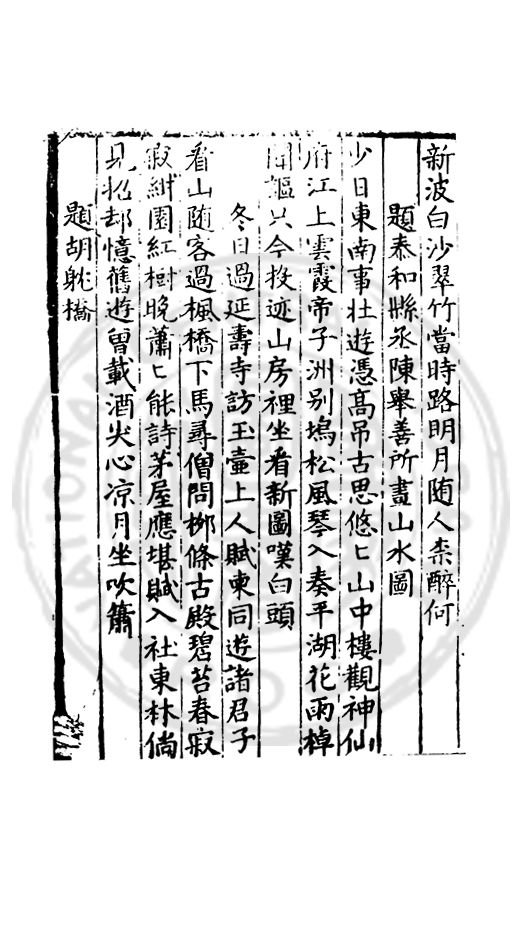 新波白沙翠竹當時路明月随人柰醉何
題泰和縣丞陳舉善所畫山水圖
少日東南事壮遊憑髙吊古思悠匕山中樓觀神仙
府江上雲霞帝子洲别塢松風琴入奏平湖花雨棹
閒謳只今投迹山房裡坐看新圖嘆白頭
冬日過延壽寺訪玉壷上人賦柬同遊諸君子
看山随客過楓橋下馬尋僧問栁條古殿碧苔春寂
寂紺園紅樹晚蕭匕能詩茅屋應堪賦入社東林倘
見招却憶舊遊曽載酒犬心凉月坐吹簫
題胡躭橋